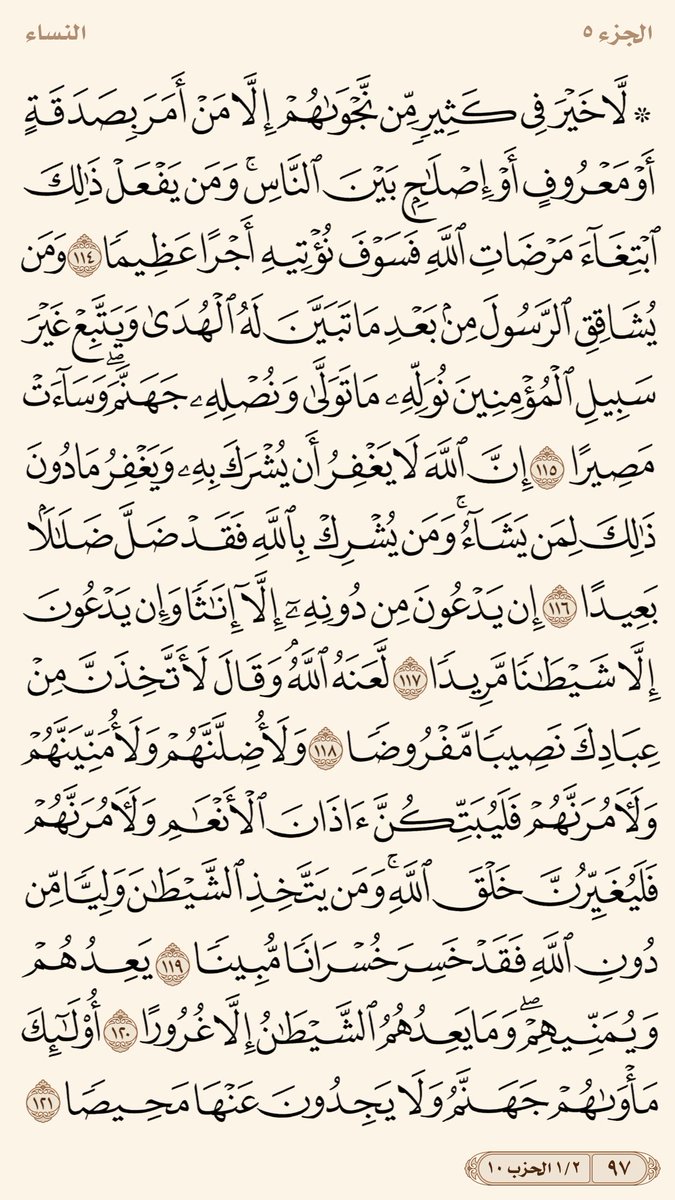 الجزء ٥ النساء
۞ لَّا خَيْرَ فِى كَثِيرٍ مِّن نَّجْوَىٰهُمْ إِلَّا مَنْ أَمَرَ بِصَدَقَةٍ
أَوْ مَعْرُوفٍ أَوْ إِصْلَٰحٍۭ بَيْنَ ٱلنَّاسِ ۚ وَمَن يَفْعَلْ ذَٰلِكَ
ٱبْتِغَآءَ مَرْضَاتِ ٱللَّهِ فَسَوْفَ نُؤْتِيهِ أَجْرًا عَظِيمًا ١١٤ وَمَن
يُشَاقِقِ ٱلرَّسُولَ مِنۢ بَعْدِ مَا تَبَيَّنَ لَهُ ٱلْهُدَىٰ وَيَتَّبِعْ غَيْرَ
سَبِيلِ ٱلْمُؤْمِنِينَ نُوَلِّهِۦ مَا تَوَلَّىٰ وَنُصْلِهِۦ جَهَنَّمَ ۖ وَسَآءَتْ
مَصِيرًا ١١٥ إِنَّ ٱللَّهَ لَا يَغْفِرُ أَن يُشْرَكَ بِهِۦ وَيَغْفِرُ مَا دُونَ
ذَٰلِكَ لِمَن يَشَآءُ ۚ وَمَن يُشْرِكْ بِٱللَّهِ فَقَدْ ضَلَّ ضَلَٰلًۢا
بَعِيدًا ١١٦ إِن يَدْعُونَ مِن دُونِهِۦٓ إِلَّآ إِنَٰثًا وَإِن يَدْعُونَ
إِلَّا شَيْطَٰنًا مَّرِيدًا ١١٧ لَّعَنَهُ ٱللَّهُ ۘ وَقَالَ لَأَتَّخِذَنَّ مِنْ
عِبَادِكَ نَصِيبًا مَّفْرُوضًا ١١٨ وَلَأُضِلَّنَّهُمْ وَلَأُمَنِّيَنَّهُمْ
وَلَءَامُرَنَّهُمْ فَلَيُبَتِّكُنَّ ءَاذَانَ ٱلْأَنْعَٰمِ وَلَءَامُرَنَّهُمْ
فَلَيُغَيِّرُنَّ خَلْقَ ٱللَّهِ ۚ وَمَن يَتَّخِذِ ٱلشَّيْطَٰنَ وَلِيًّا مِّن
دُونِ ٱللَّهِ فَقَدْ خَسِرَ خُسْرَانًا مُّبِينًا ١١٩ يَعِدُهُمْ
وَيُمَنِّيهِمْ ۖ وَمَا يَعِدُهُمُ ٱلشَّيْطَٰنُ إِلَّا غُرُورًا ١٢٠ أُو۟لَٰٓئِكَ
مَأْوَىٰهُمْ جَهَنَّمُ وَلَا يَجِدُونَ عَنْهَا مَحِيصًا ١٢١
٩٧ ١/٢ الحزب ١٠